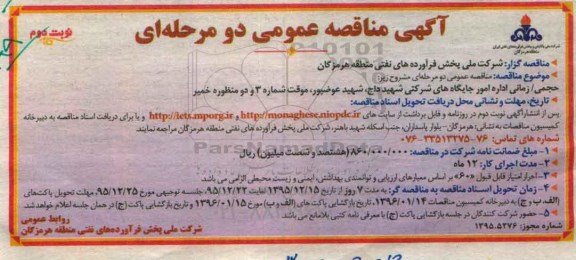 آگهی مناقصه عمومی دو مرحله‌ای
نوبت دوم
مناقصه گزار: شرکت ملی پخش فرآورده های نفتی منطقه هرمزگان
موضوع مناقصه: مناقصه عمومی دو مرحله‌ای مشروح زیر:
حجمی/ زمانی اداره امور جایگاه های شرکتی شهید حاج، شهید عوضپور، موقت شماره ۳ و دو منظوره خمیر
تاریخ، مهلت و نشانی محل دریافت تحویل اسناد مناقصه:
پس از انتشار آگهی نوبت دوم در روزنامه و قابل برداشت از سایت های http://monaghese.niopdc.ir و http://iets.mporg.ir و یا برای دریافت اسناد مناقصه به دبیرخانه
کمیسیون مناقصات به نشانی: هرمزگان- بلوار پاسداران، جنب اسکله شهید باهنر، شرکت ملی پخش فرآورده های نفتی منطقه هرمزگان مراجعه نمایند.
شماره های تماس: ۷۶-۳۳۵۱۳۲۷۵-۰۷۶
۱- مبلغ ضمانت نامه شرکت در مناقصه: ۸۶۰/۰۰۰/۰۰۰ (هشتصد و شصت میلیون) ریال
۲- مدت اجرای کار: ۱۲ ماه
۳- احراز امتیاز قابل قبول «۶۰» بر اساس معیارهای ارزیابی و توانمندی بهداشتی، ایمنی و زیست محیطی الزامی می باشد.
۴- زمان تحویل اسناد مناقصه به مناقصه گر: به مدت ۷ روز از تاریخ ۱۳۹۵/۱۲/۱۵ لغایت ۹۵/۱۲/۲۲، جلسه توجیهی مورخ ۹۵/۱۲/۲۵، مهلت تحویل پاکت‌های
(الف، ب و ج) به دبیرخانه کمیسیون مناقصات ۱۳۹۶/۰۱/۱۴، تاریخ بازگشایی پاکت های (الف و ب) مورخ ۱۳۹۶/۰۱/۱۵ و تاریخ بازگشایی پاکت (ج) در همان جلسه اعلام خواهد شد.
۵- حضور شرکت کنندگان در جلسه بازگشایی پاکت (ج) با معرفی نامه کتبی بلامانع می باشد.
شماره مجوز: ۱۳۹۵.۵۲۷۶
روابط عمومی
شرکت ملی پخش فرآورده‌های نفتی منطقه هرمزگان